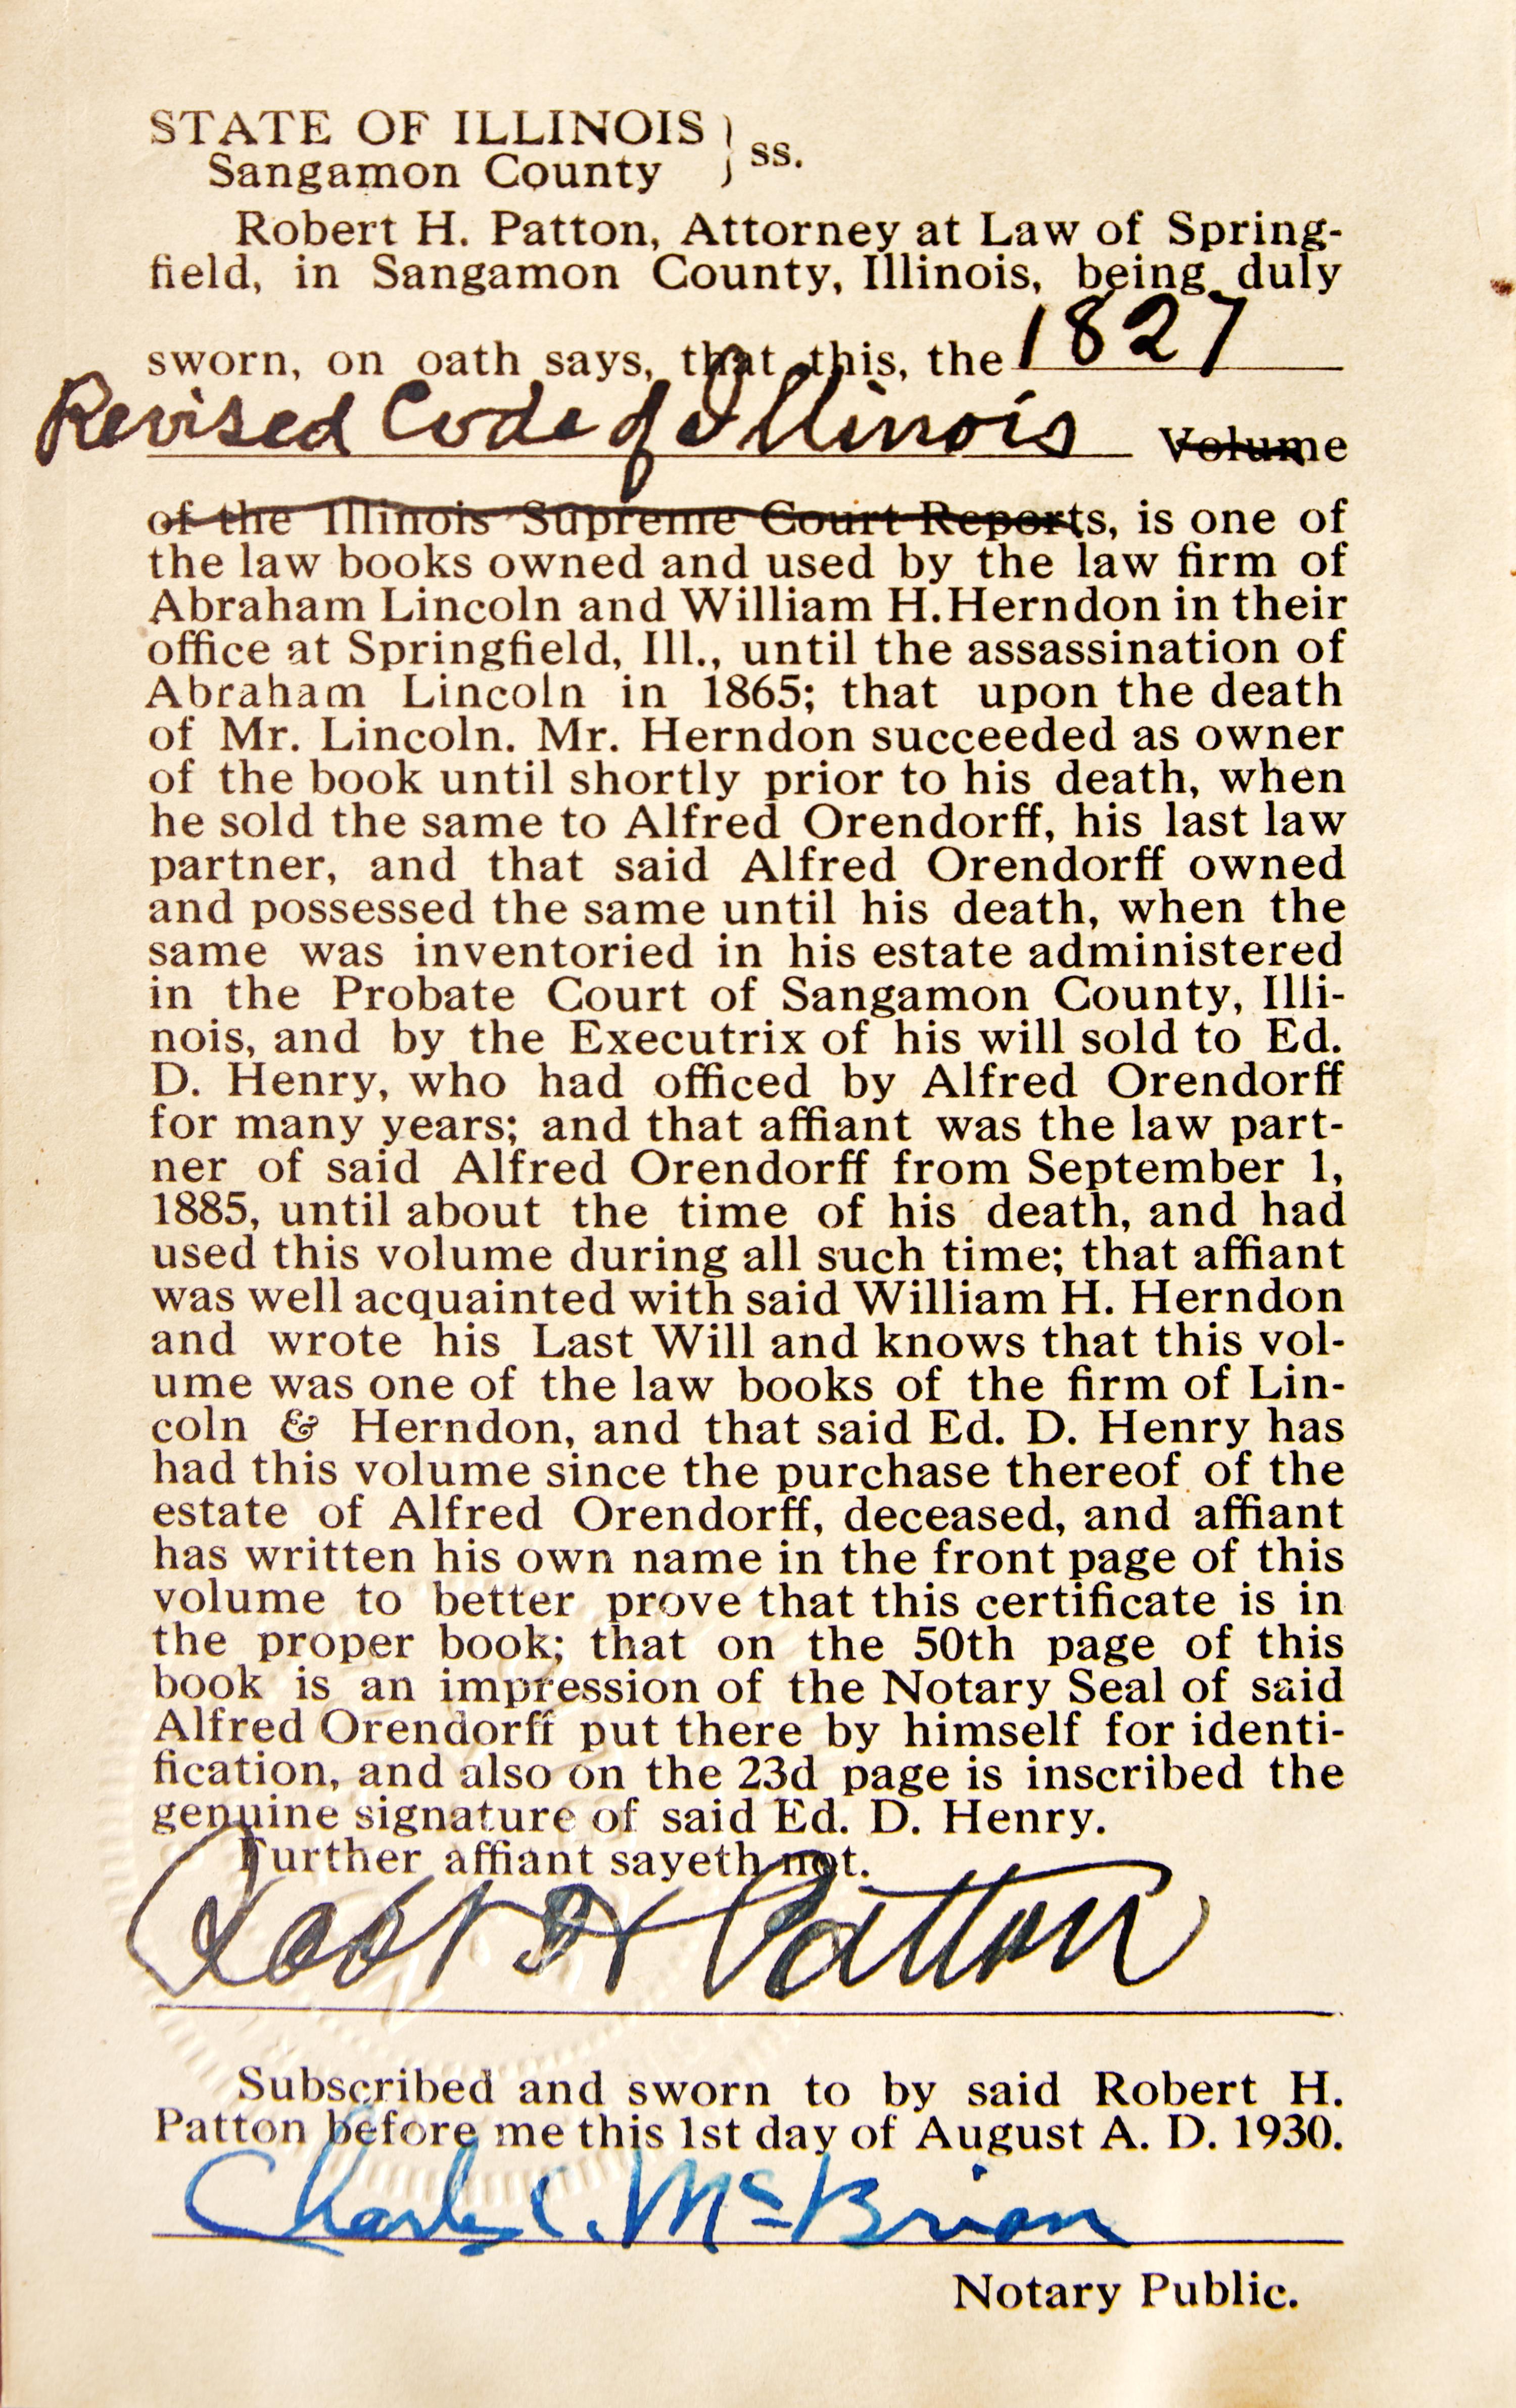 STATE OF ILLINOIS } ss.
Sangamon County
Robert H. Patton, Attorney at Law of Spring-
field, in Sangamon County, Illinois, being duly
sworn, on oath says, that this, the 1827
Revised Code of Illinois Volume
of the Illinois Supreme Court Reports, is one of
the law books owned and used by the law firm of
Abraham Lincoln and William H. Herndon in their
office at Springfield, Ill., until the assassination of
Abraham Lincoln in 1865; that upon the death
of Mr. Lincoln. Mr. Herndon succeeded as owner
of the book until shortly prior to his death, when
he sold the same to Alfred Orendorff, his last law
partner, and that said Alfred Orendorff owned
and possessed the same until his death, when the
same was inventoried in his estate administered
in the Probate Court of Sangamon County, Illi-
nois, and by the Executrix of his will sold to Ed.
D. Henry, who had officed by Alfred Orendorff
for many years; and that affiant was the law part-
ner of said Alfred Orendorff from September 1,
1885, until about the time of his death, and had
used this volume during all such time; that affiant
was well acquainted with said William H. Herndon
and wrote his Last Will and knows that this vol-
ume was one of the law books of the firm of Lin-
coln & Herndon, and that said Ed. D. Henry has
had this volume since the purchase thereof of the
estate of Alfred Orendorff, deceased, and affiant
has written his own name in the front page of this
volume to better prove that this certificate is in
the proper book; that on the 50th page of this
book is an impression of the Notary Seal of said
Alfred Orendorff put there by himself for identi-
fication, and also on the 23d page is inscribed the
genuine signature of said Ed. D. Henry.
Further affiant sayeth not.
Robt H Patton
Subscribed and sworn to by said Robert H.
Patton before me this 1st day of August A. D. 1930.
Charles C. McBrian
Notary Public.